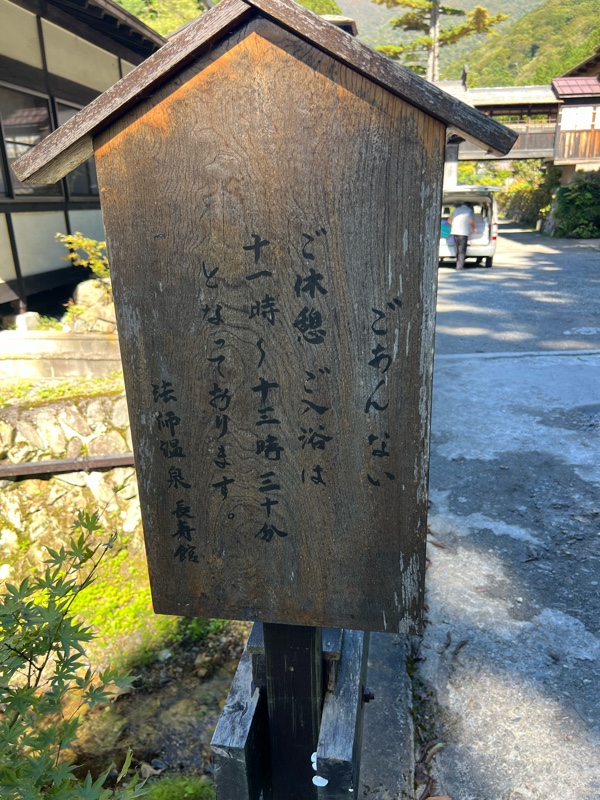 ごあんない
ご休憩 ご入浴は
十一時~十三時三十分
となっております。
法師温泉 長寿館